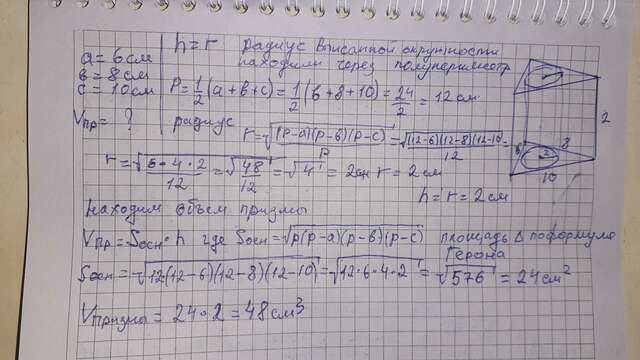 h = r радиус вписанной окружности
находили через полупериметр
a = 6 см
в = 8 см
c = 10 см
P = 1/2 (a + в + c) = 1/2 (6 + 8 + 10) = 24/2 = 12 см
Vпр = ?
радиус
r = √((p-a)(p-в)(p-c)/p) = √((12-6)(12-8)(12-10)/12) =
r = √(6·4·2/12) = √(48/12) = √4 = 2 см r = 2 см
h = r = 2 см
2
6 8
10
Находим объем призмы
Vпр = Sосн · h где Sосн = √(p(p-a)(p-в)(p-c)) площадь Δ по формуле
Герона
Sосн = √(12(12-6)(12-8)(12-10)) = √(12·6·4·2) = √576 = 24 см²
Vпризмы = 24·2 = 48 см³